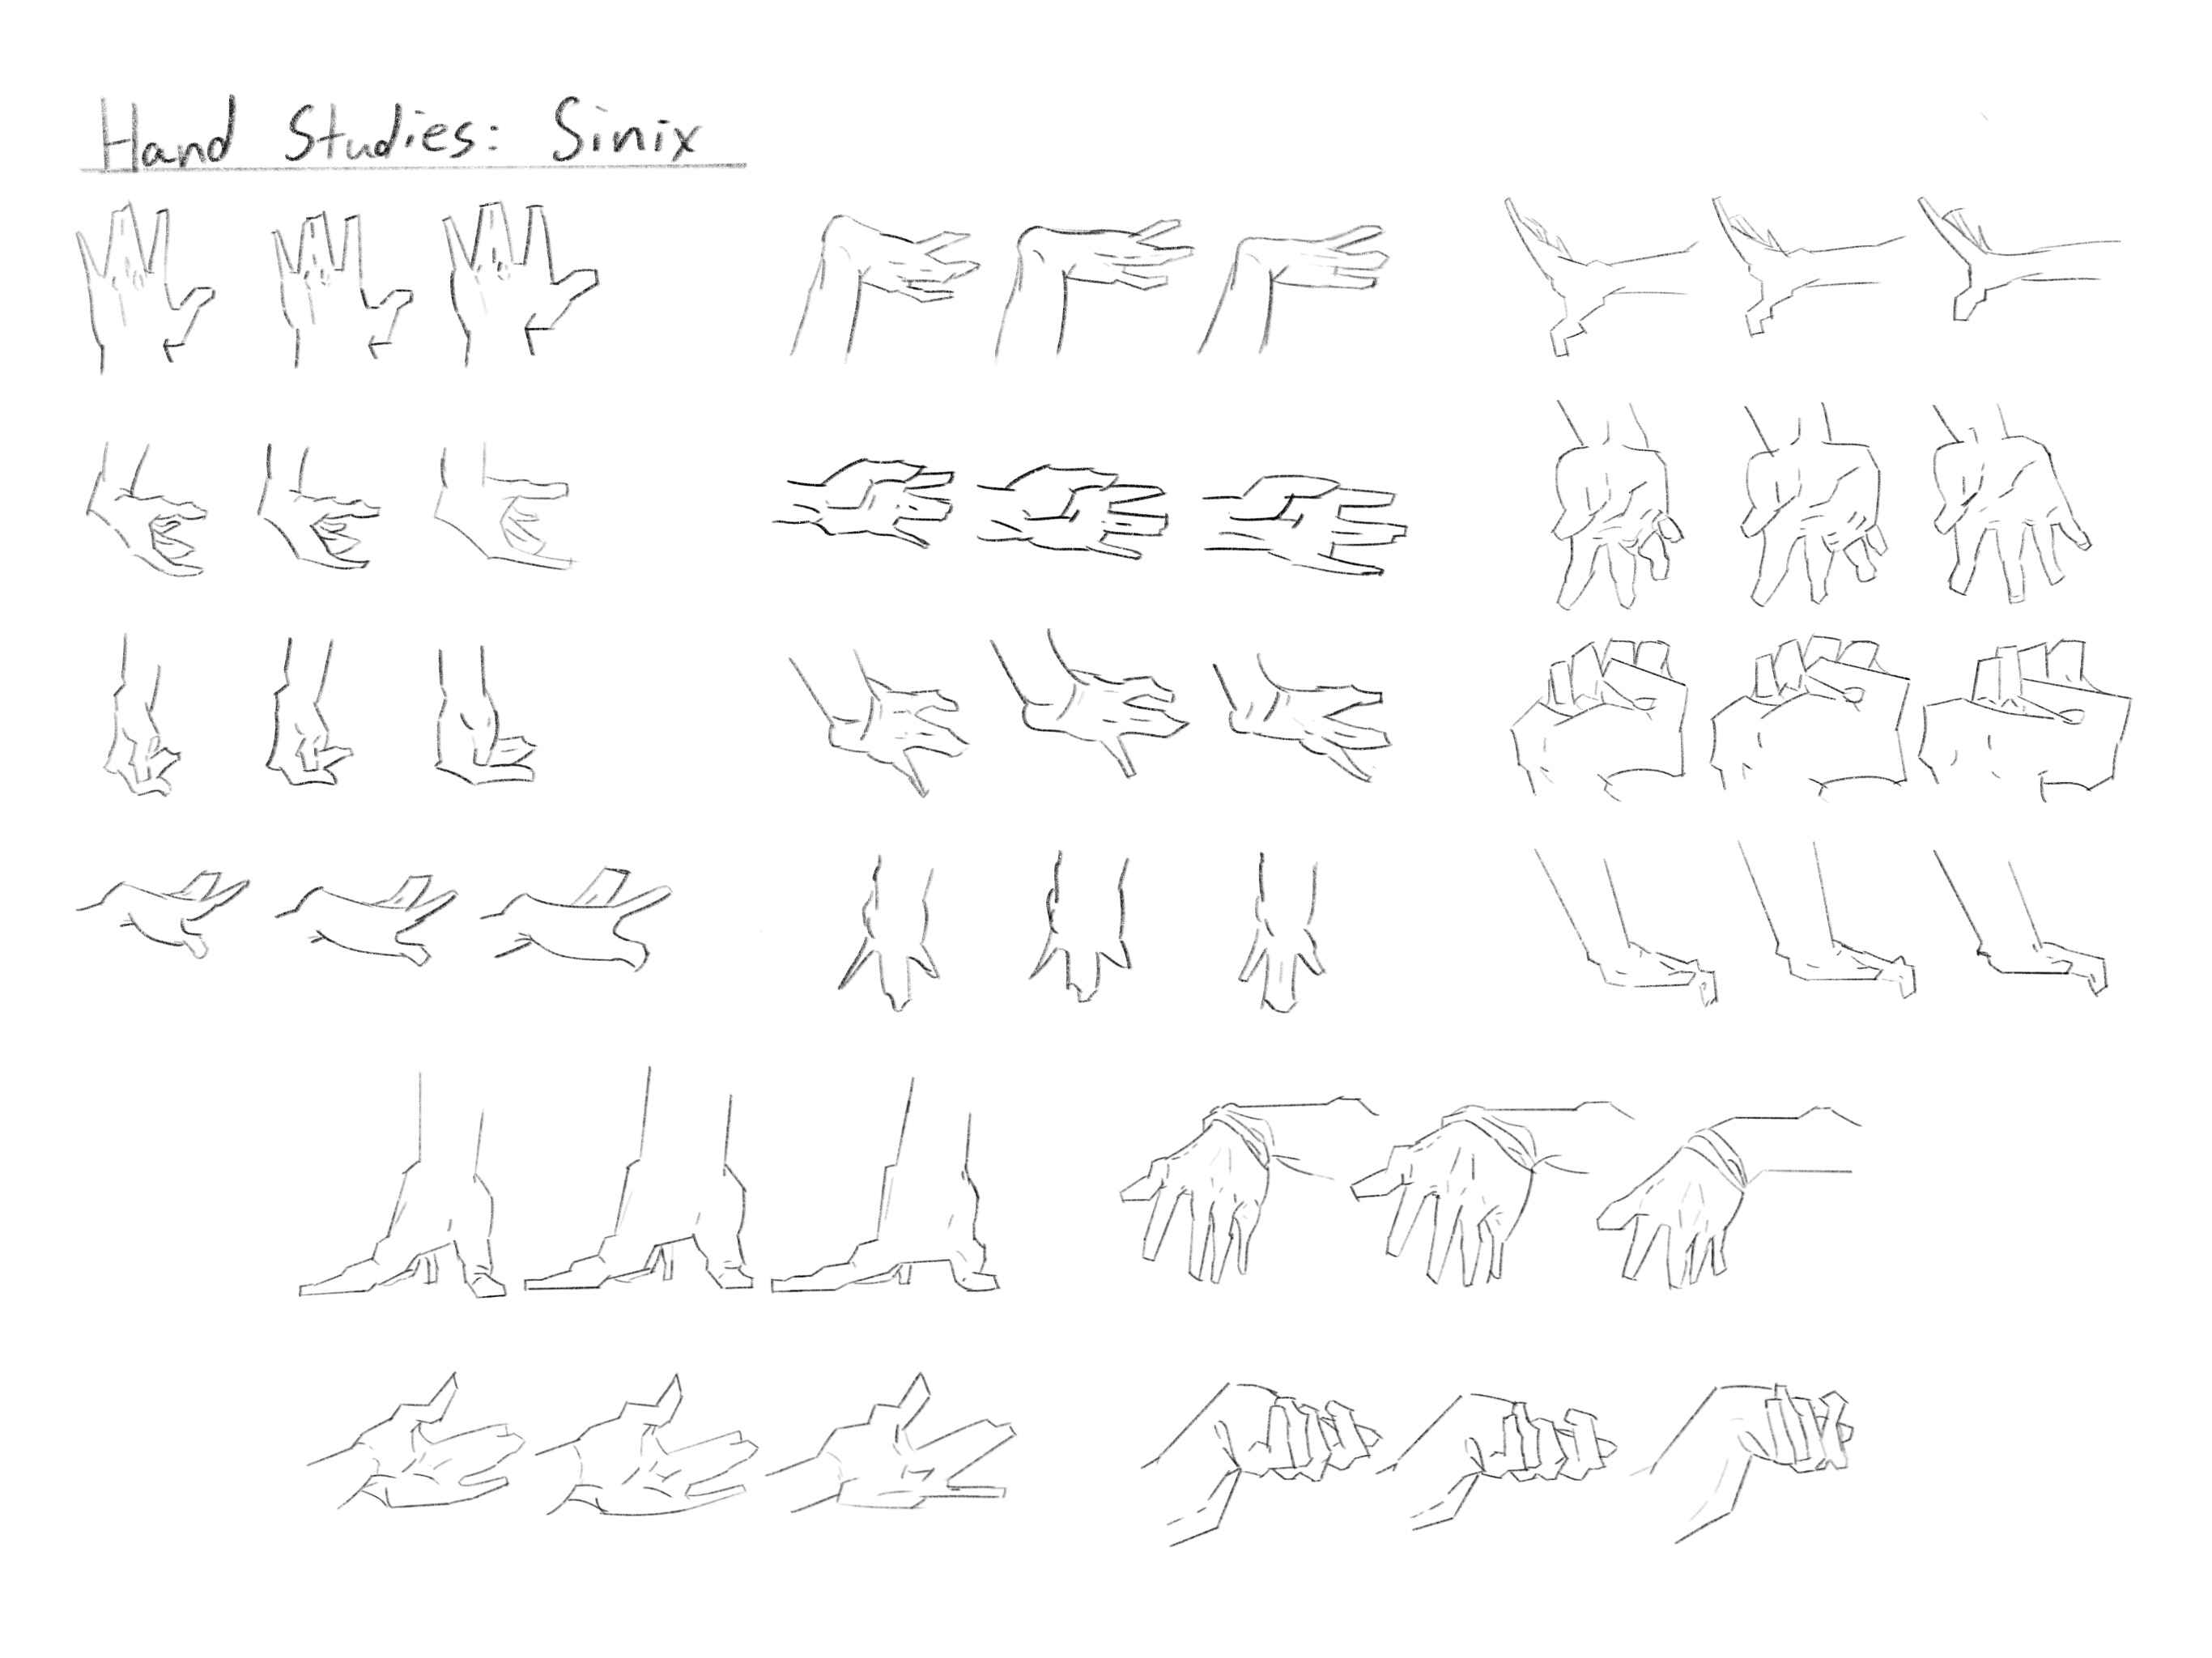 Hand Studies: Sinix